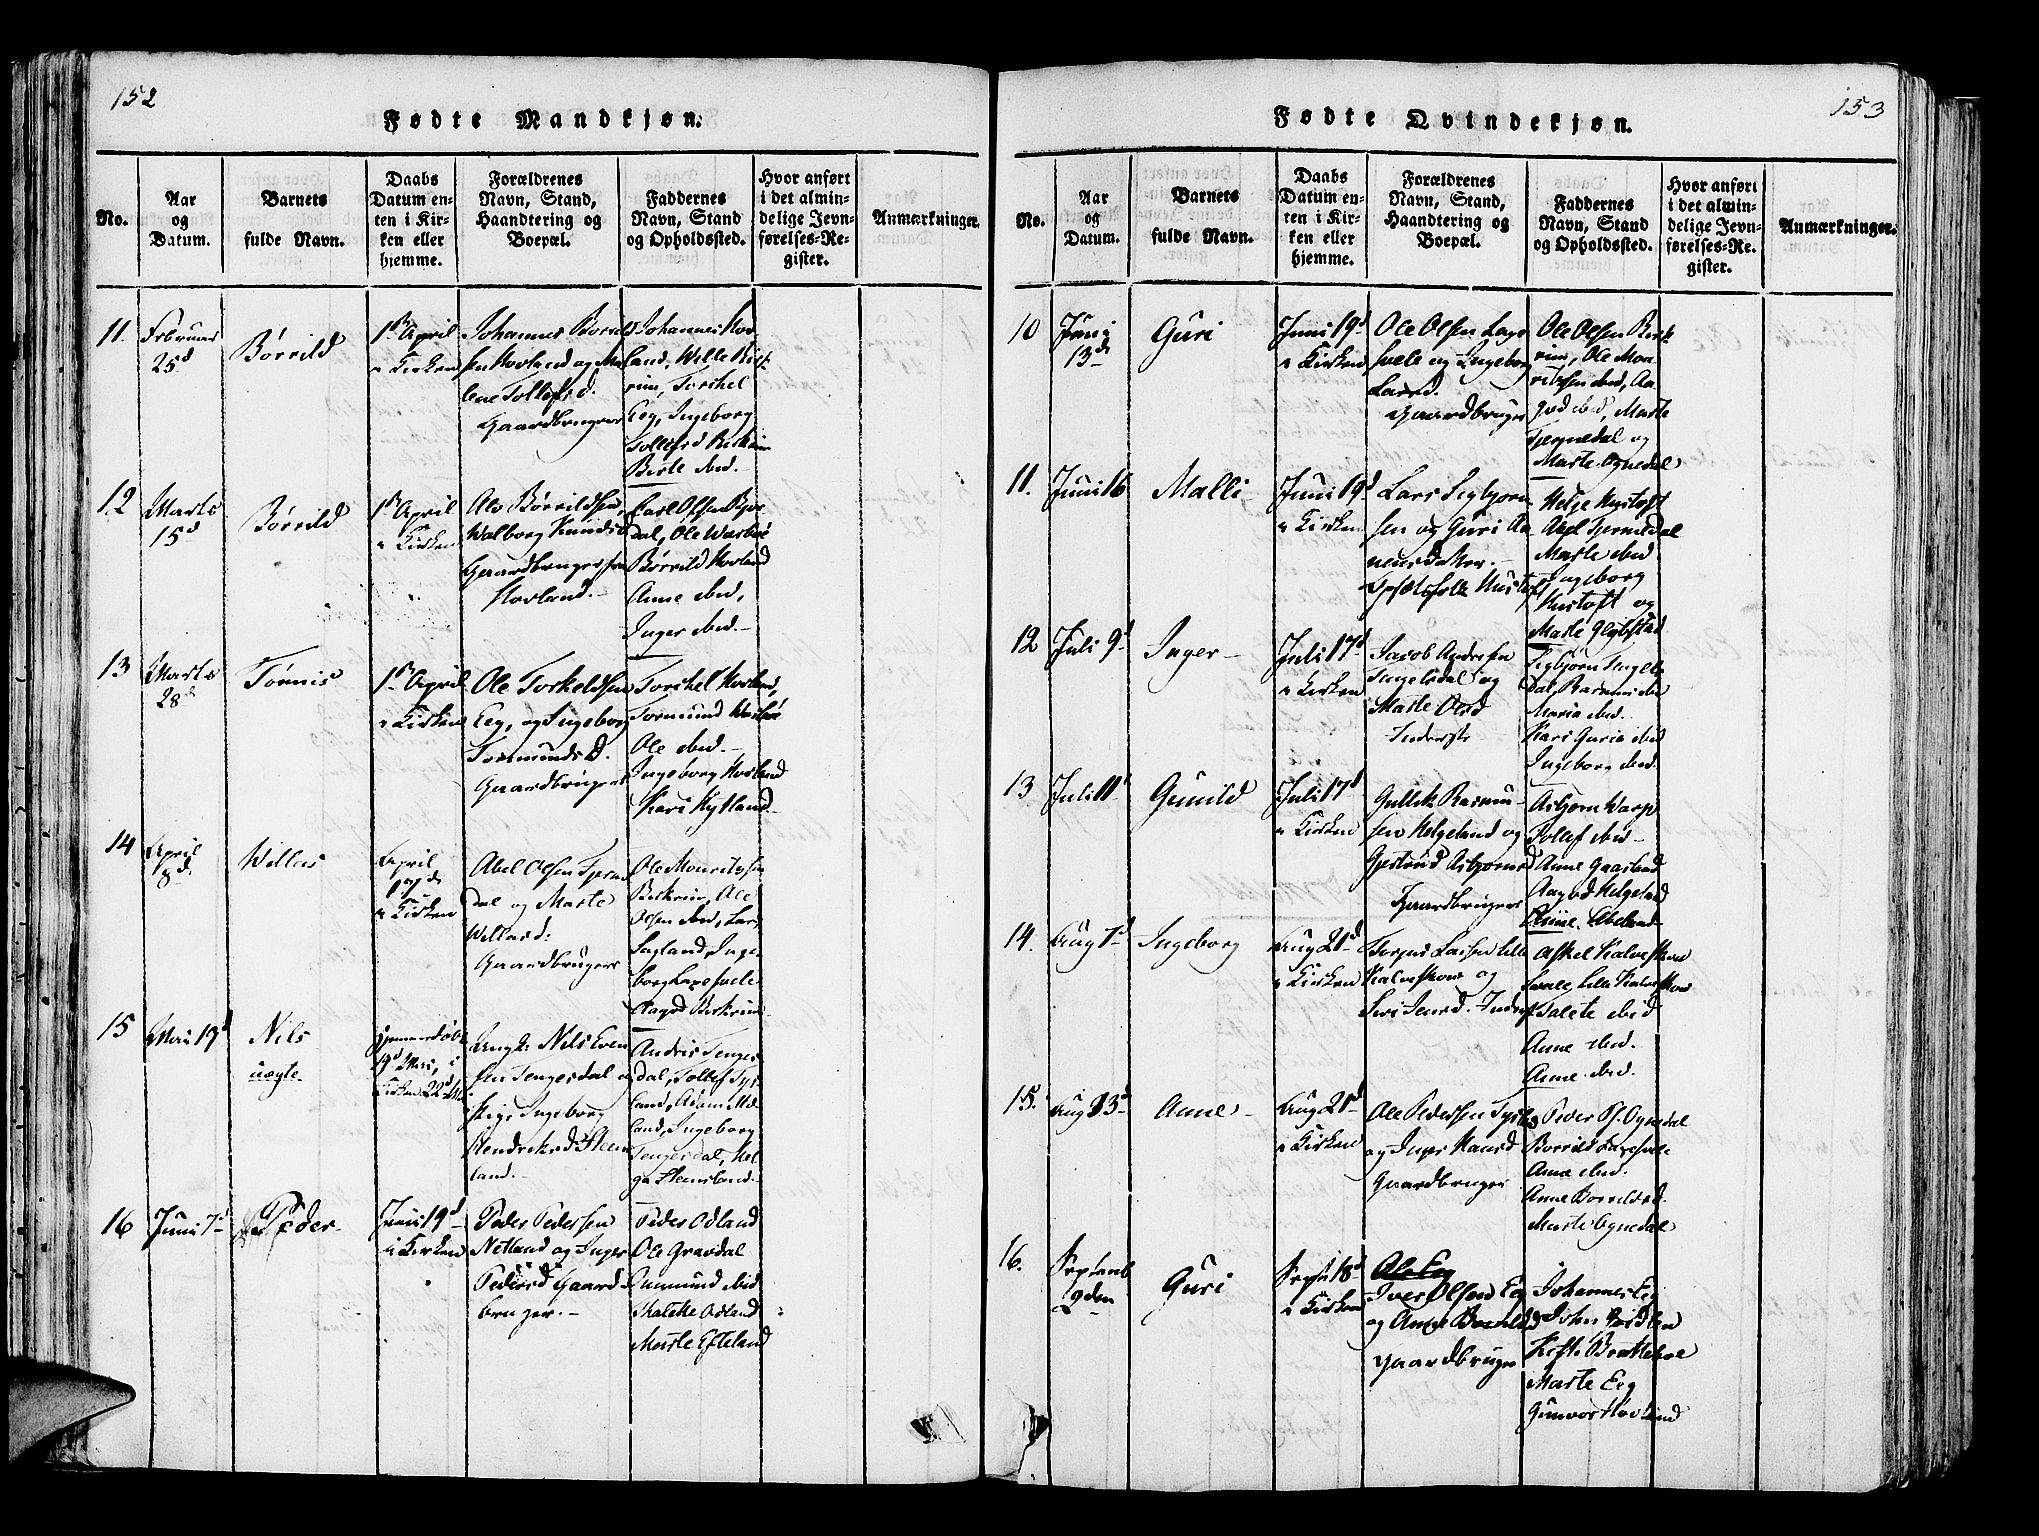 152
Fødte Mandkjøn.
No.
Aar
og
Datum.
Barnets
fulde Navn.
Daabs
Datum en-
ten i Kir-
ken eller
hjemme.
Forældrenes
Navn, Stand,
Haandtering og
Boepæl.
Faddernes
Navn, Stand
og Opholdssted.
Hvor anført
i det almin-
delige Jevn-
førelses-Re-
gister.
Anmærkninger.
11.
Februar
25d
Børrild
1ste April
i Kirken
Johannes Børrild
sen Hovland og Ma
lene Tollefsd.
Gaardbruger
Johannes Hov-
land, Wille Birk-
rim, Torkel
Eeg, Ingeborg
Tollefsd Birkrim
Berte ibid.
12
Marts
15d
Børrild
1ste April
i Kirken
Alv Børrildsen,
Walborg Knudsd
Gaardbruger fra
Hovland.
Carl Olsen
dal, Ole
Børrild Hovland
Anne ibid,
Inger ibid.
13
Marts
28d
Tønnis
1ste April
i Kirken
Ole Torkeldsen
Eeg, og Ingeborg
Tormundsd.
Gaardbruger
Torkel Hovland,
Tormund
Ole ibid.
Ingeborg Hovland
Kari Kytland
14
April
8d.
Willas
April
17de
i Kirken
Abel Olsen Tjern
dal og Marte
Willasd:
Gaardbrugere
Ole Mouritzsen
Birkrim, Ole
Olsen ibid, Lars
Sagland, Inge
borg Laxesvele
Aagod Birkrim
15
Mai 19d
Nils
uægte
19d Mai, i
Kirken 22d
Ungk: Nils Even
sen Tengesdal og
Pige Ingeborg
Hendriksd Steen
land.
Andris Tenges
dal, Tollef Tys-
land, Adam
land, Ingeborg
Tengesdal, Hel
ga Stensland
16
Juni 7d
Peder
Juni 19d
i Kirken
Peder Pedersen
Netland og Inger
Pedersd Gaard-
bruger.
Peder Odland
Ole Gravdal
Aanund ibid
Malene Odland
Marte Efteland
153
Fødte Qvindekjøn.
No.
Aar
og
Datum.
Barnets
fulde Navn.
Daabs
Datum en-
ten i Kir-
ken eller
hjemme.
Forældrenes
Navn, Stand,
Haandtering og
Boepæl.
Faddernes
Navn, Stand
og Opholdssted.
Hvor anført
i det almin-
delige Jevn-
førelses-Re-
gister.
Anmærkninger.
10
Juni
13de
Guri
Juni 19d
i Kirken
Ole Olsen Laxe
svele og Ingeborg
Larsd.
Gaardbruger
Ole Olsen Birk-
rim, Ole Mou-
ritzsen ibid, Aa-
god ibid, Marte
Tjernedal og
Marte Ognedal
11.
Juni 16
Malli
Juni 19d
i Kirken
Lars Sigbjørn
sen og Guri Aa
nensdatter.
Huspsfolk Hustoft
Helge Hustoft
Abel Tjernedal
Marte ibid
Ingeborg
Hustoft og
Marte
12
Juli 9d
Inger
Juli 17d
i Kirken
Jacob Andersen
Tengesdal og
Marte Olsd
Inderste
Sigbjørn Tenges
dal, Rasmus ibid
Maria ibid.
Kari Guria ibid
Ingeborg ibid.
13
Juli 11te
Gunild
Juli 17d
i Kirken
Gullik Rasmu-
sen Helgeland og
Gjertrud Asbjørnsd
Gaardbrugere
Asbjørn Warp
Tollef ibid
Anne Gaasland
Aagod Helgeland
Anne
14.
Aug 7d
Ingeborg
Aug 21d
i Kirken
Torger Larsen lille
Kalveskore og
Siri Iversd. Inderst
Askel Kalveskore
Svale lille Kalveskor
Talete ibid
Anne ibid.
Anne ibid.
15.
Aug 13d
Anne
Aug 21d
i Kirken
Ole Pedersen
og Inger Hansd
Gaardbruger
Peder P. Ognedal
Børrild Laxesvele
Anne ibid.
Anne Børrildsd.
Marte Ognedal
16.
Septemb
2den
Guri
Sept 18d
i Kirken
Ole Eeg
Iver Olsen Eeg
og Anne Børrildsd
Gaardbruger
Johannes Eeg
John
Marte Eeg
Gunvor Hovland